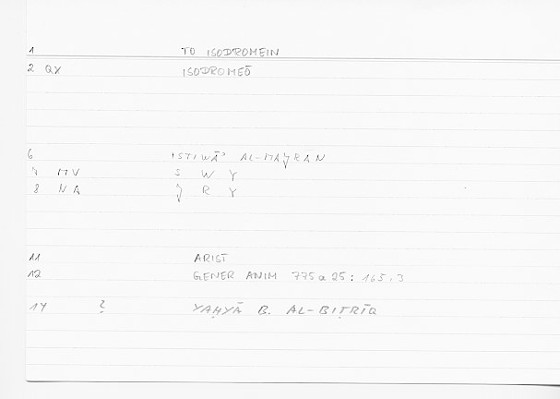 1 TO ISODROMEIN
2 QX ISODROMEŌ
6 ISTIWĀʾ AL-MAǦRAN
7 MV S W Y
8 NA Ǧ R Y
11 ARIST
12 GENER ANIM 775a25: 165,3
14 ? YAḤYĀ B. AL-BIṬRĪQ